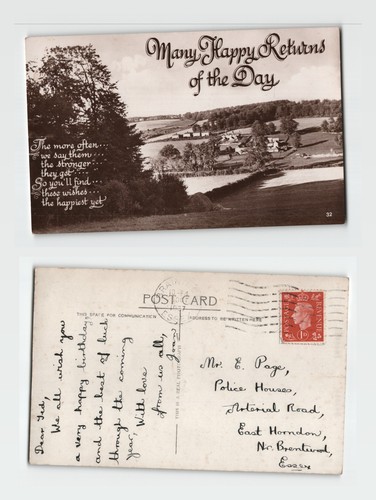 Many Happy Returns
of the Day
The more often...
we say them...
the stronger...
they get...
So you'll find...
these wishes...
the happiest yet
32
POST CARD
THIS SPACE FOR COMMUNICATION
ADDRESS TO BE WRITTEN HERE
Dear Ted,
We all wish you
a very happy birthday
and the best of luck
through the coming
year, With love
from us all,
Joan
Mr. E. Page,
Police Houses,
Arterial Road,
East Horndon,
Nr. Brentwood,
Essex